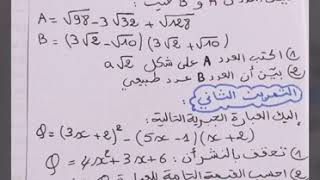 A = √98 - 3√32 + √128
B = (3√2 - √10)(3√2 + √10)
1) اكتب العدد A على شكل a√2
2) بيّن أن العدد B عدد طبيعي
التمرين الثاني:
إليك العبارة الجبرية التالية:
Q = (3x + 2)² - (5x - 1)(x + 2)
1) تحقق بالنشر أن: Q = 4x² + 3x + 6
2) احسب القيمة